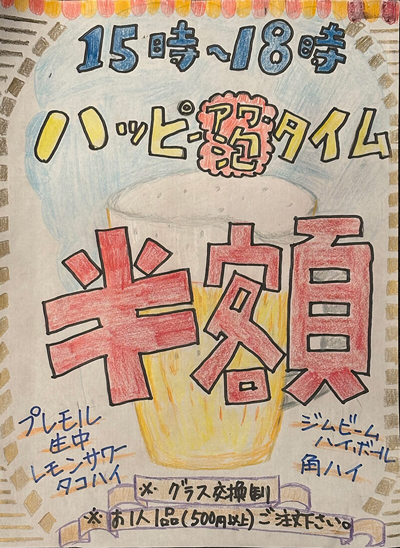 15時~18時
ハッピーアワー泡タイム
半額
プレモル
生中
レモンサワー
タコハイ
ジムビーム
ハイボール
角ハイ
※ グラス交換制
※ お1人1品(500円以上)ご注文下さい。